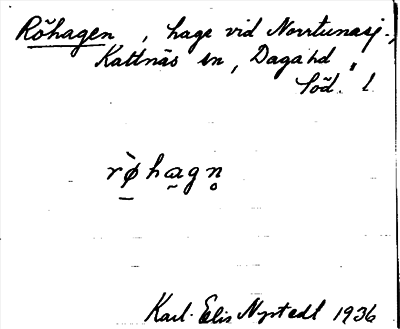 Röhagen, hage vid Norrtunasj.,
Kattnäs sn, Daga hd
Söd. l.
rø̀hagn̥
Karl-Elis Nystedt 1936